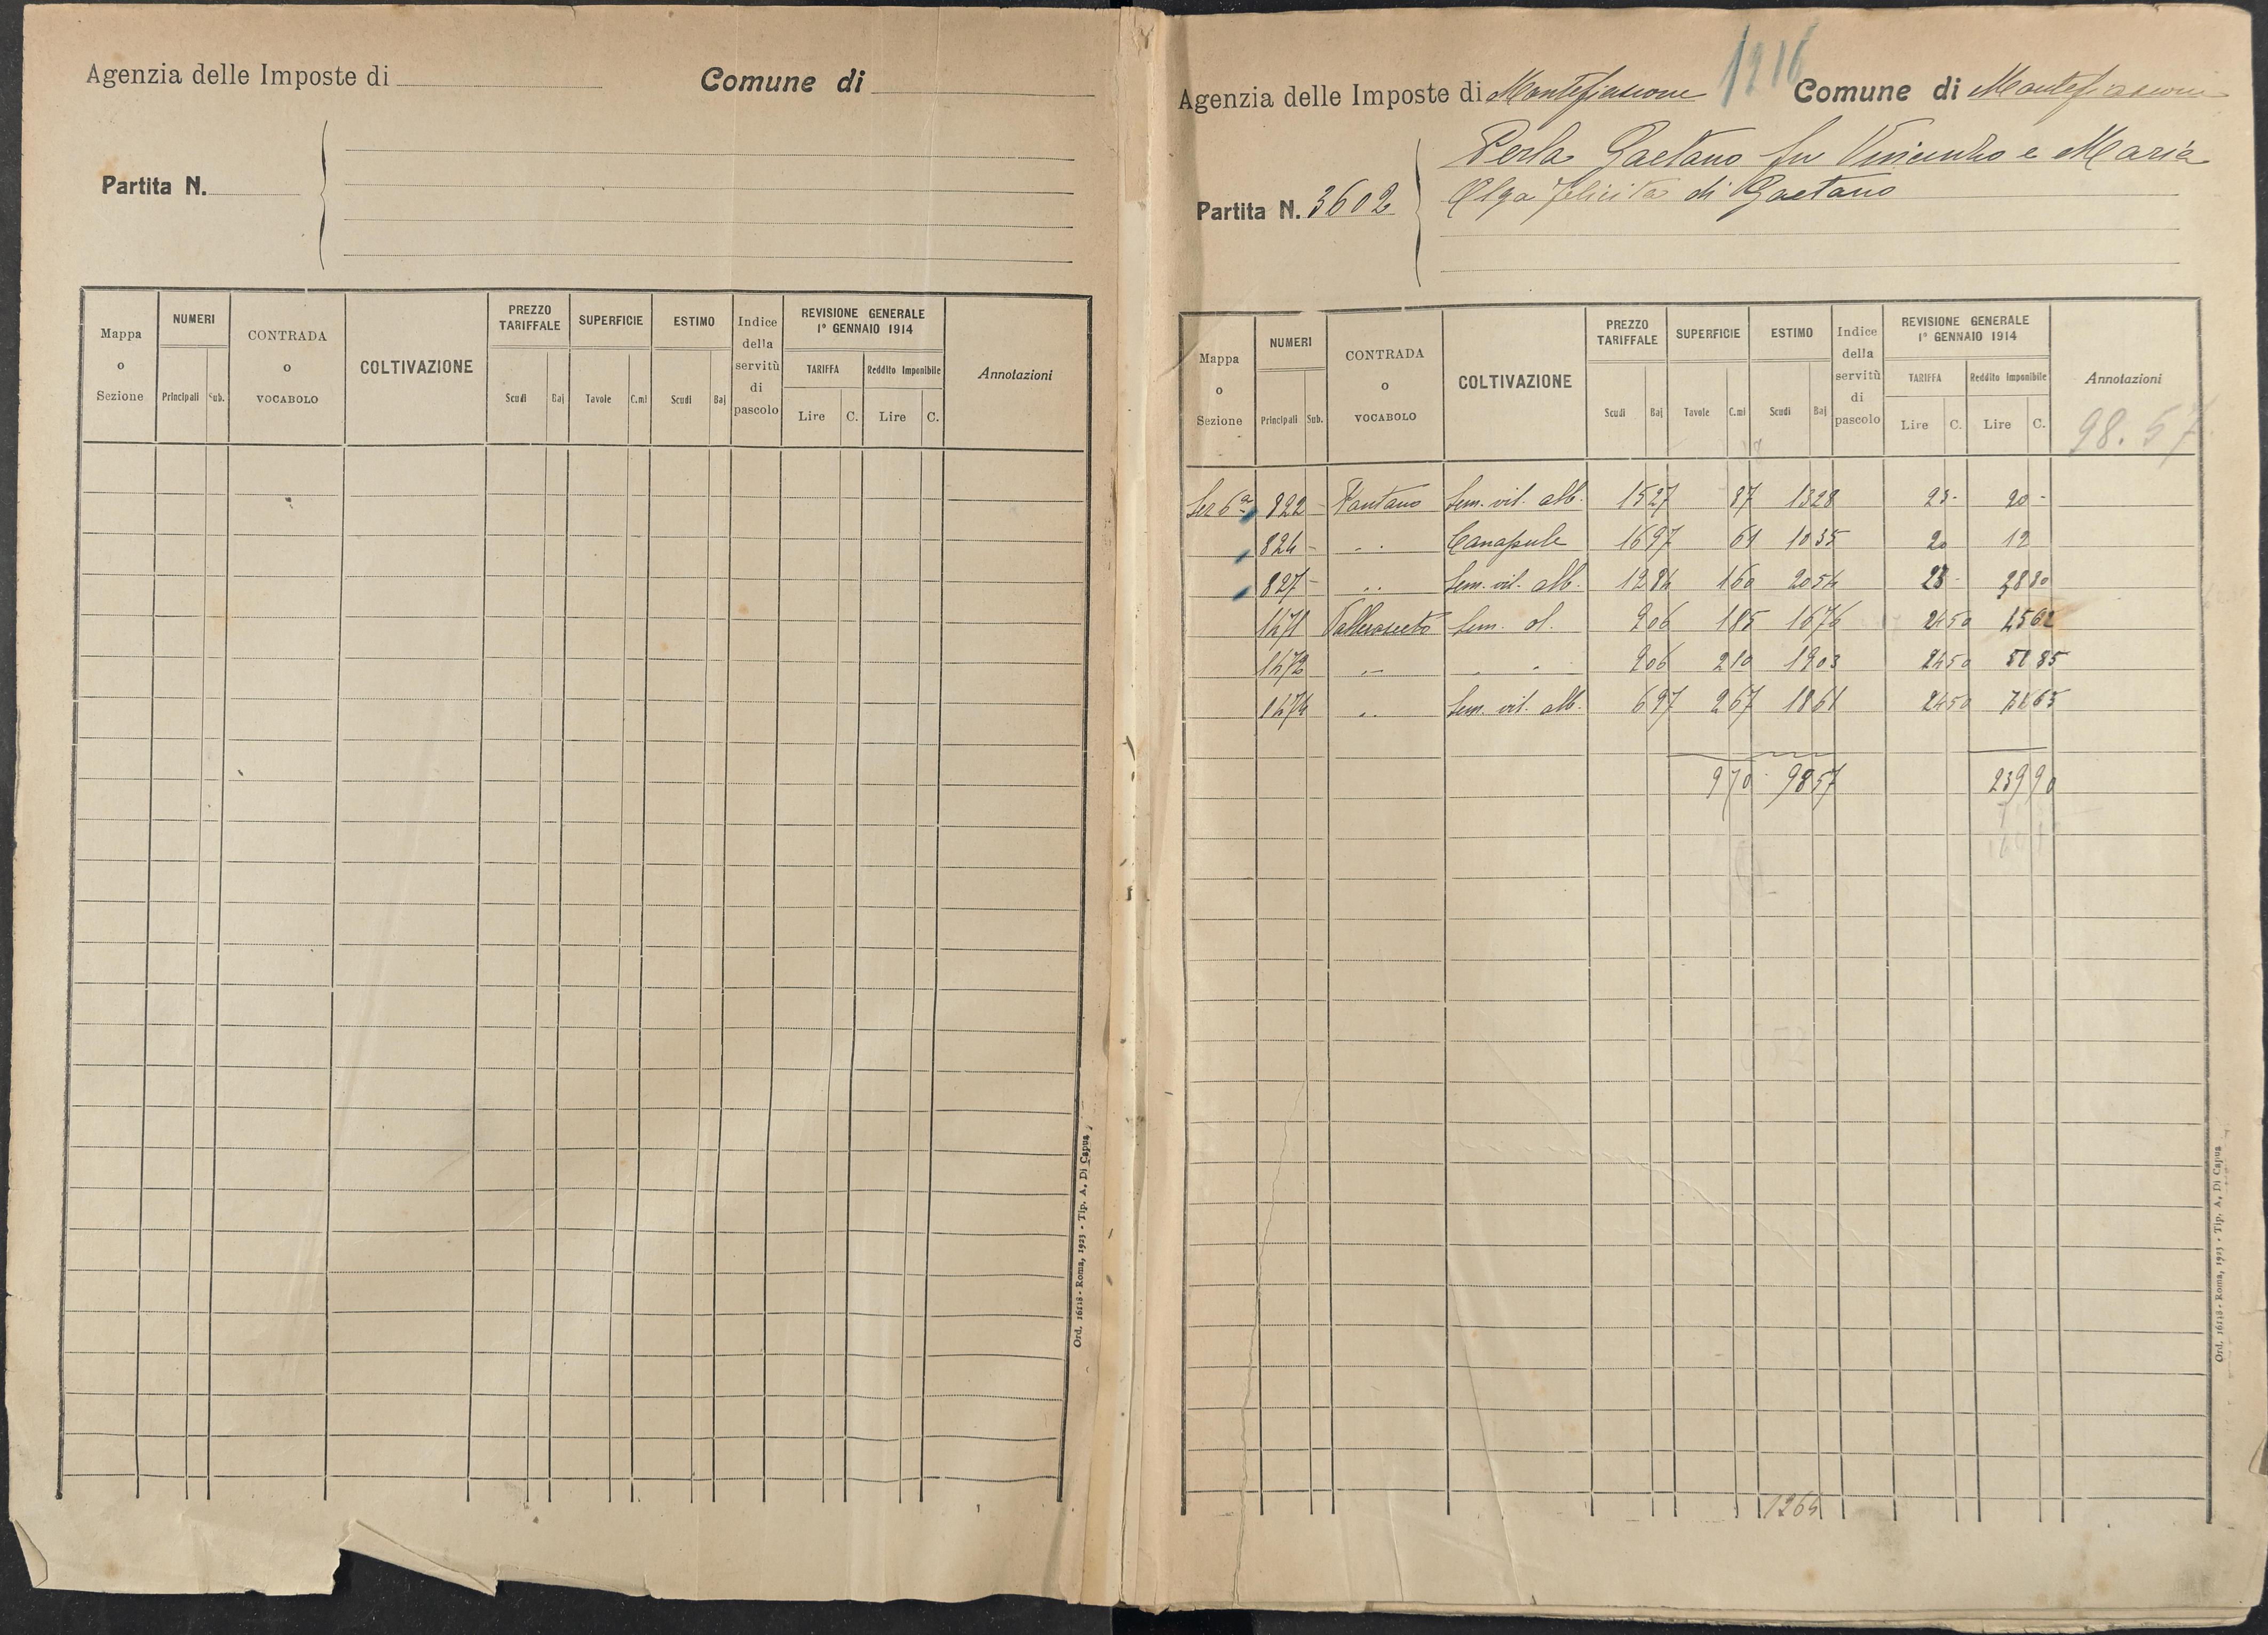 Agenzia delle Imposte di
Comune di
Partita N.
Mappa o Sezione
NUMERI
Principali Sub.
CONTRADA o VOCABOLO
COLTIVAZIONE
PREZZO TARIFFALE
Scudi Baj
SUPERFICIE
Tavole C.mi
ESTIMO
Scudi Baj
Indice della servitù di pascolo
REVISIONE GENERALE 1° GENNAIO 1914
TARIFFA Reddito Imponibile
Lire C. Lire C.
Annotazioni
Ord. 16118 - Roma, 1923 - Tip. A. Di Capua
1216
Agenzia delle Imposte di Montefiascone Comune di Montefiascone
Perla Gaetano fu Vincenzo e Maria
Olga Felicita di Gaetano
Partita N. 3602
Mappa o Sezione
NUMERI
Principali Sub.
CONTRADA o VOCABOLO
COLTIVAZIONE
PREZZO TARIFFALE
Scudi Baj
SUPERFICIE
Tavole C.mi
ESTIMO
Scudi Baj
Indice della servitù di pascolo
REVISIONE GENERALE 1° GENNAIO 1914
TARIFFA Reddito Imponibile
Lire C. Lire C.
Annotazioni
98.57
Sez 6a 822 - Pantano Sem. vit. alb. 1527 87 1328 23 - 20 -
824 - " Canapule 1697 61 1035 20 12
827 - " Sem. vit. alb. 1284 160 2054 28 -
1471 Sem. ol. 906 185 1676 2450
1472 " " " 906 210 1903 2450
1474 " Sem. vit. alb. 697 267 1861 2450
970 9857 23990
1264
Ord. 16118 - Roma, 1923 - Tip. A. Di Capua